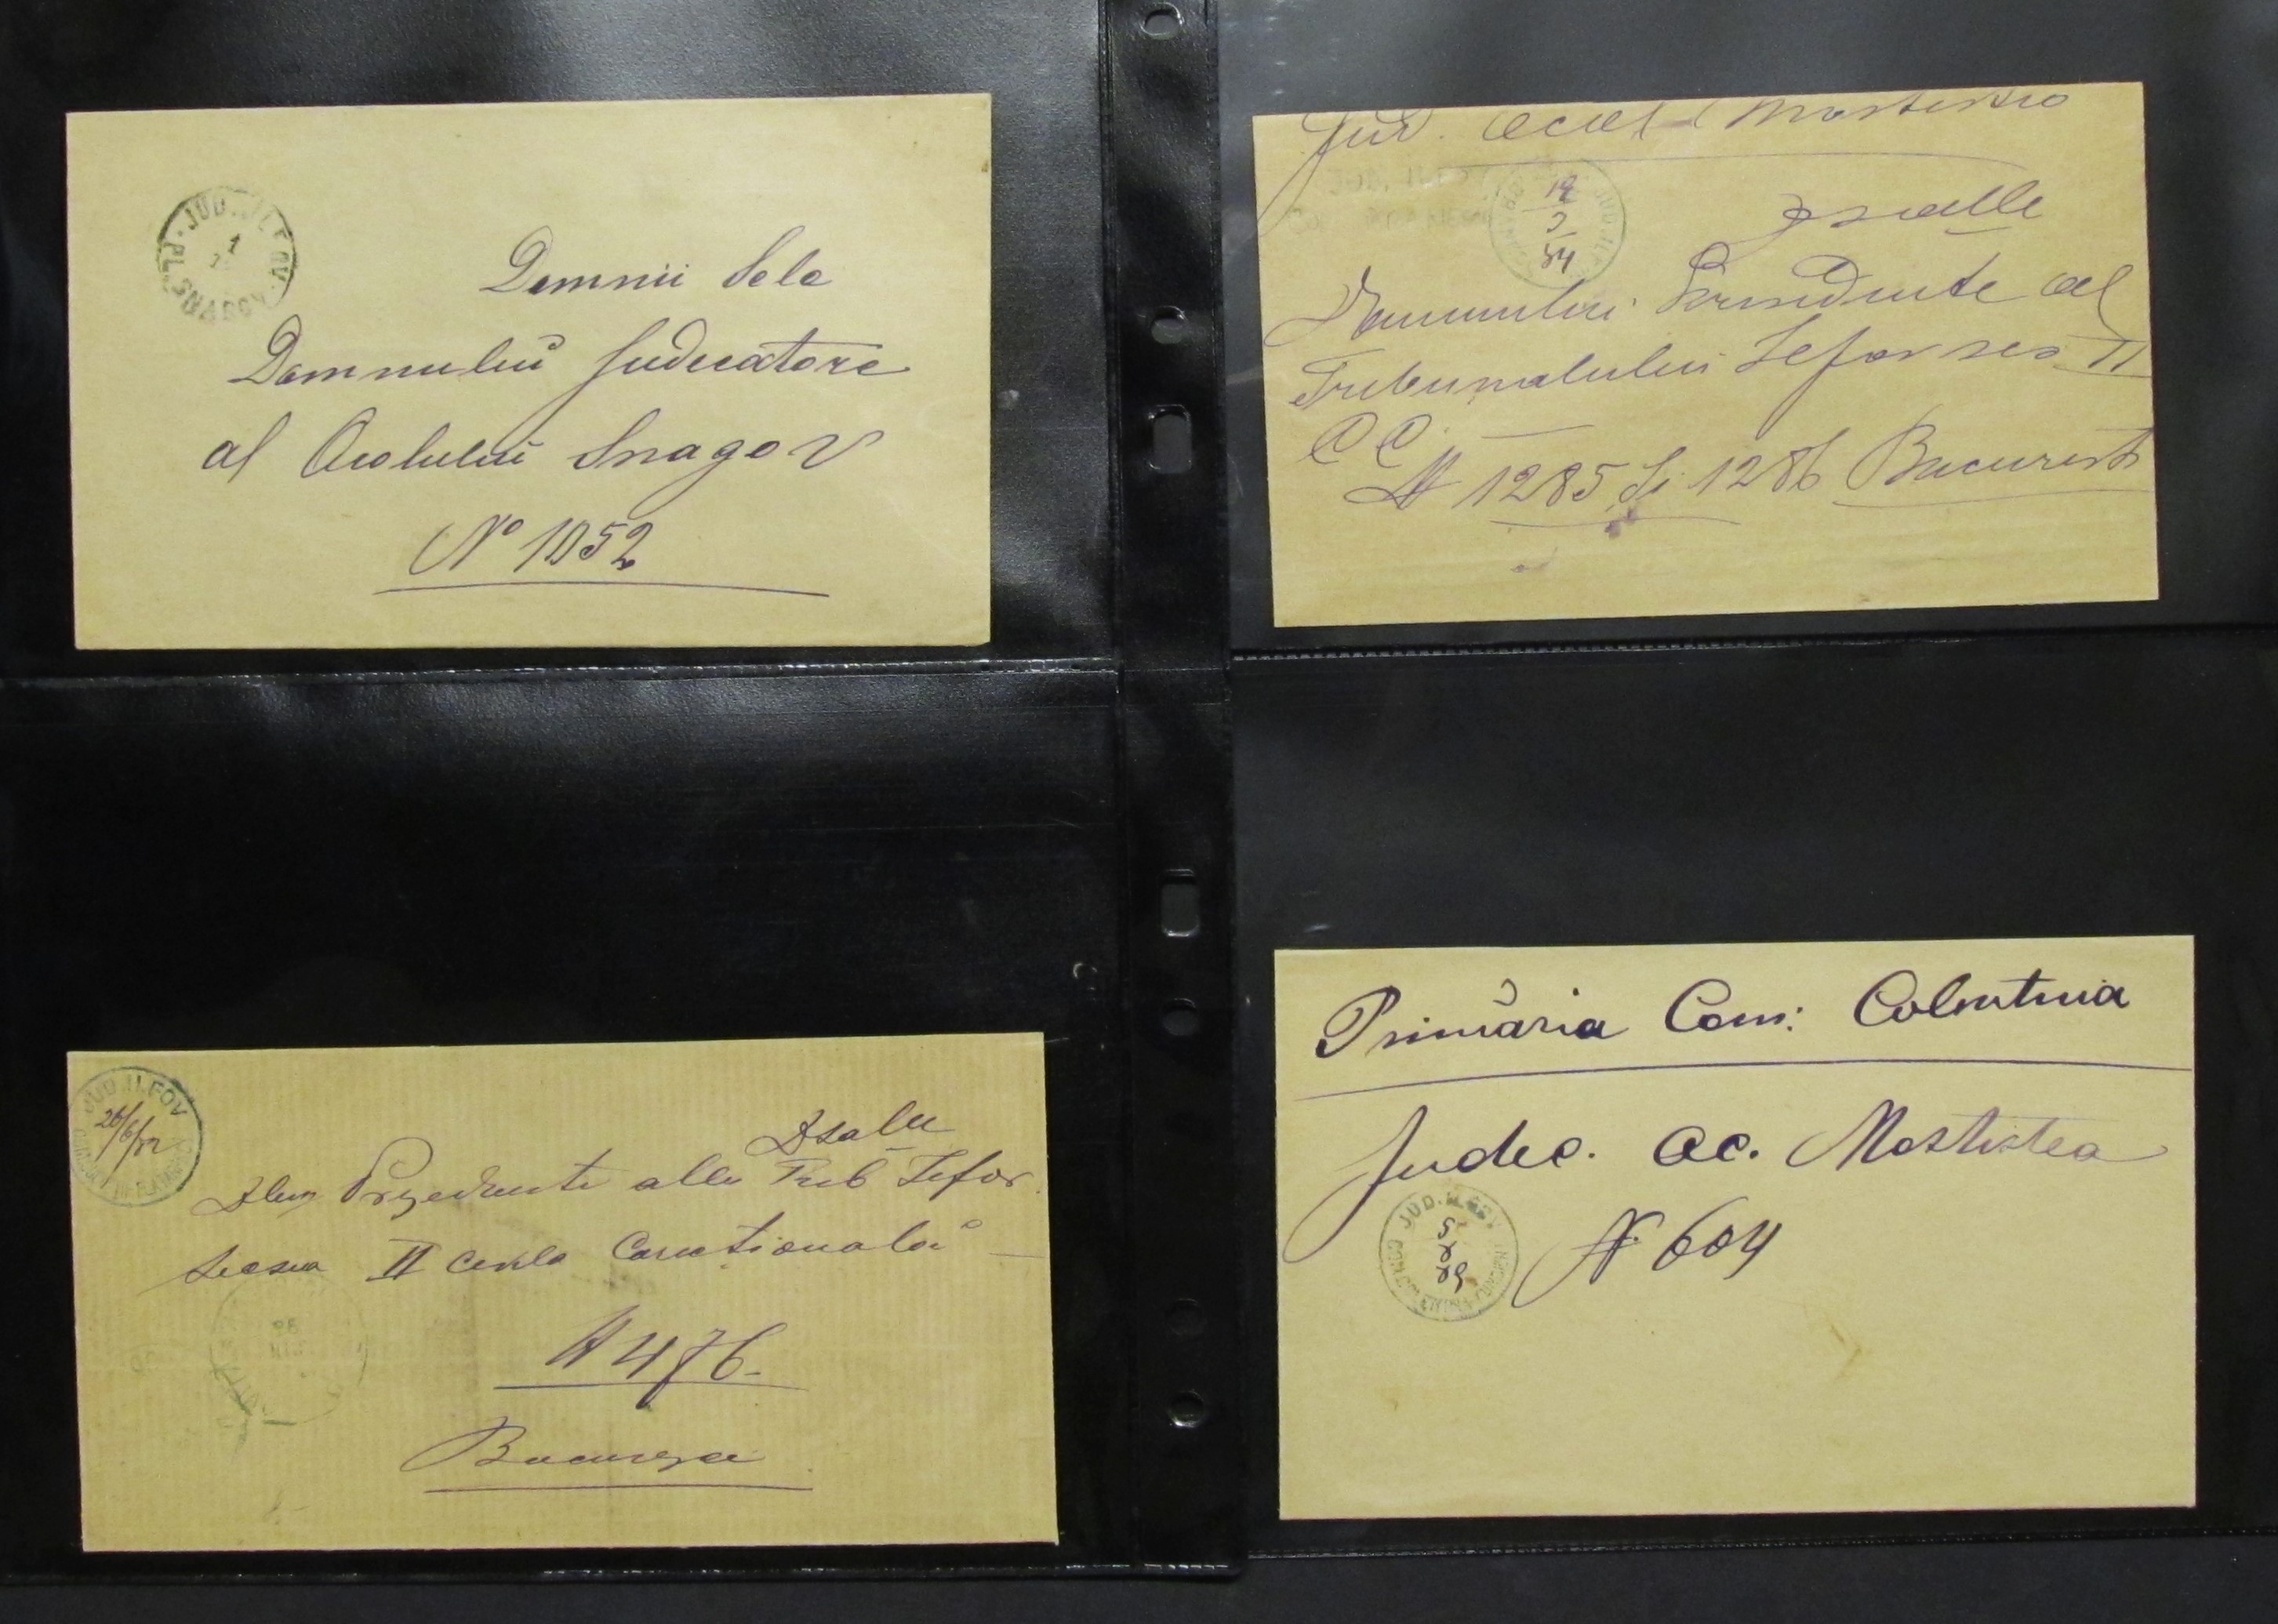 JUD. ILFOV
1
Domnii Sele
Domnului Judecatore
al Ocolului Snagov
No 1052
Jud. Ocol Mostistea
JUD. ILFOV
19
84
Domnului Presidente al
Tribunalului Ilfov sec II
C C
N 1285 si 1286 Bucuresti
JUD. ILFOV
26/6/
Dsale
Presedinte alle Trib Ilfov
Secsia II Corectionala
N 476.
Bucuresci
Primăria Com: Colentina
Judec. Oc. Mostistea
JUD. ILFOV
N. 604